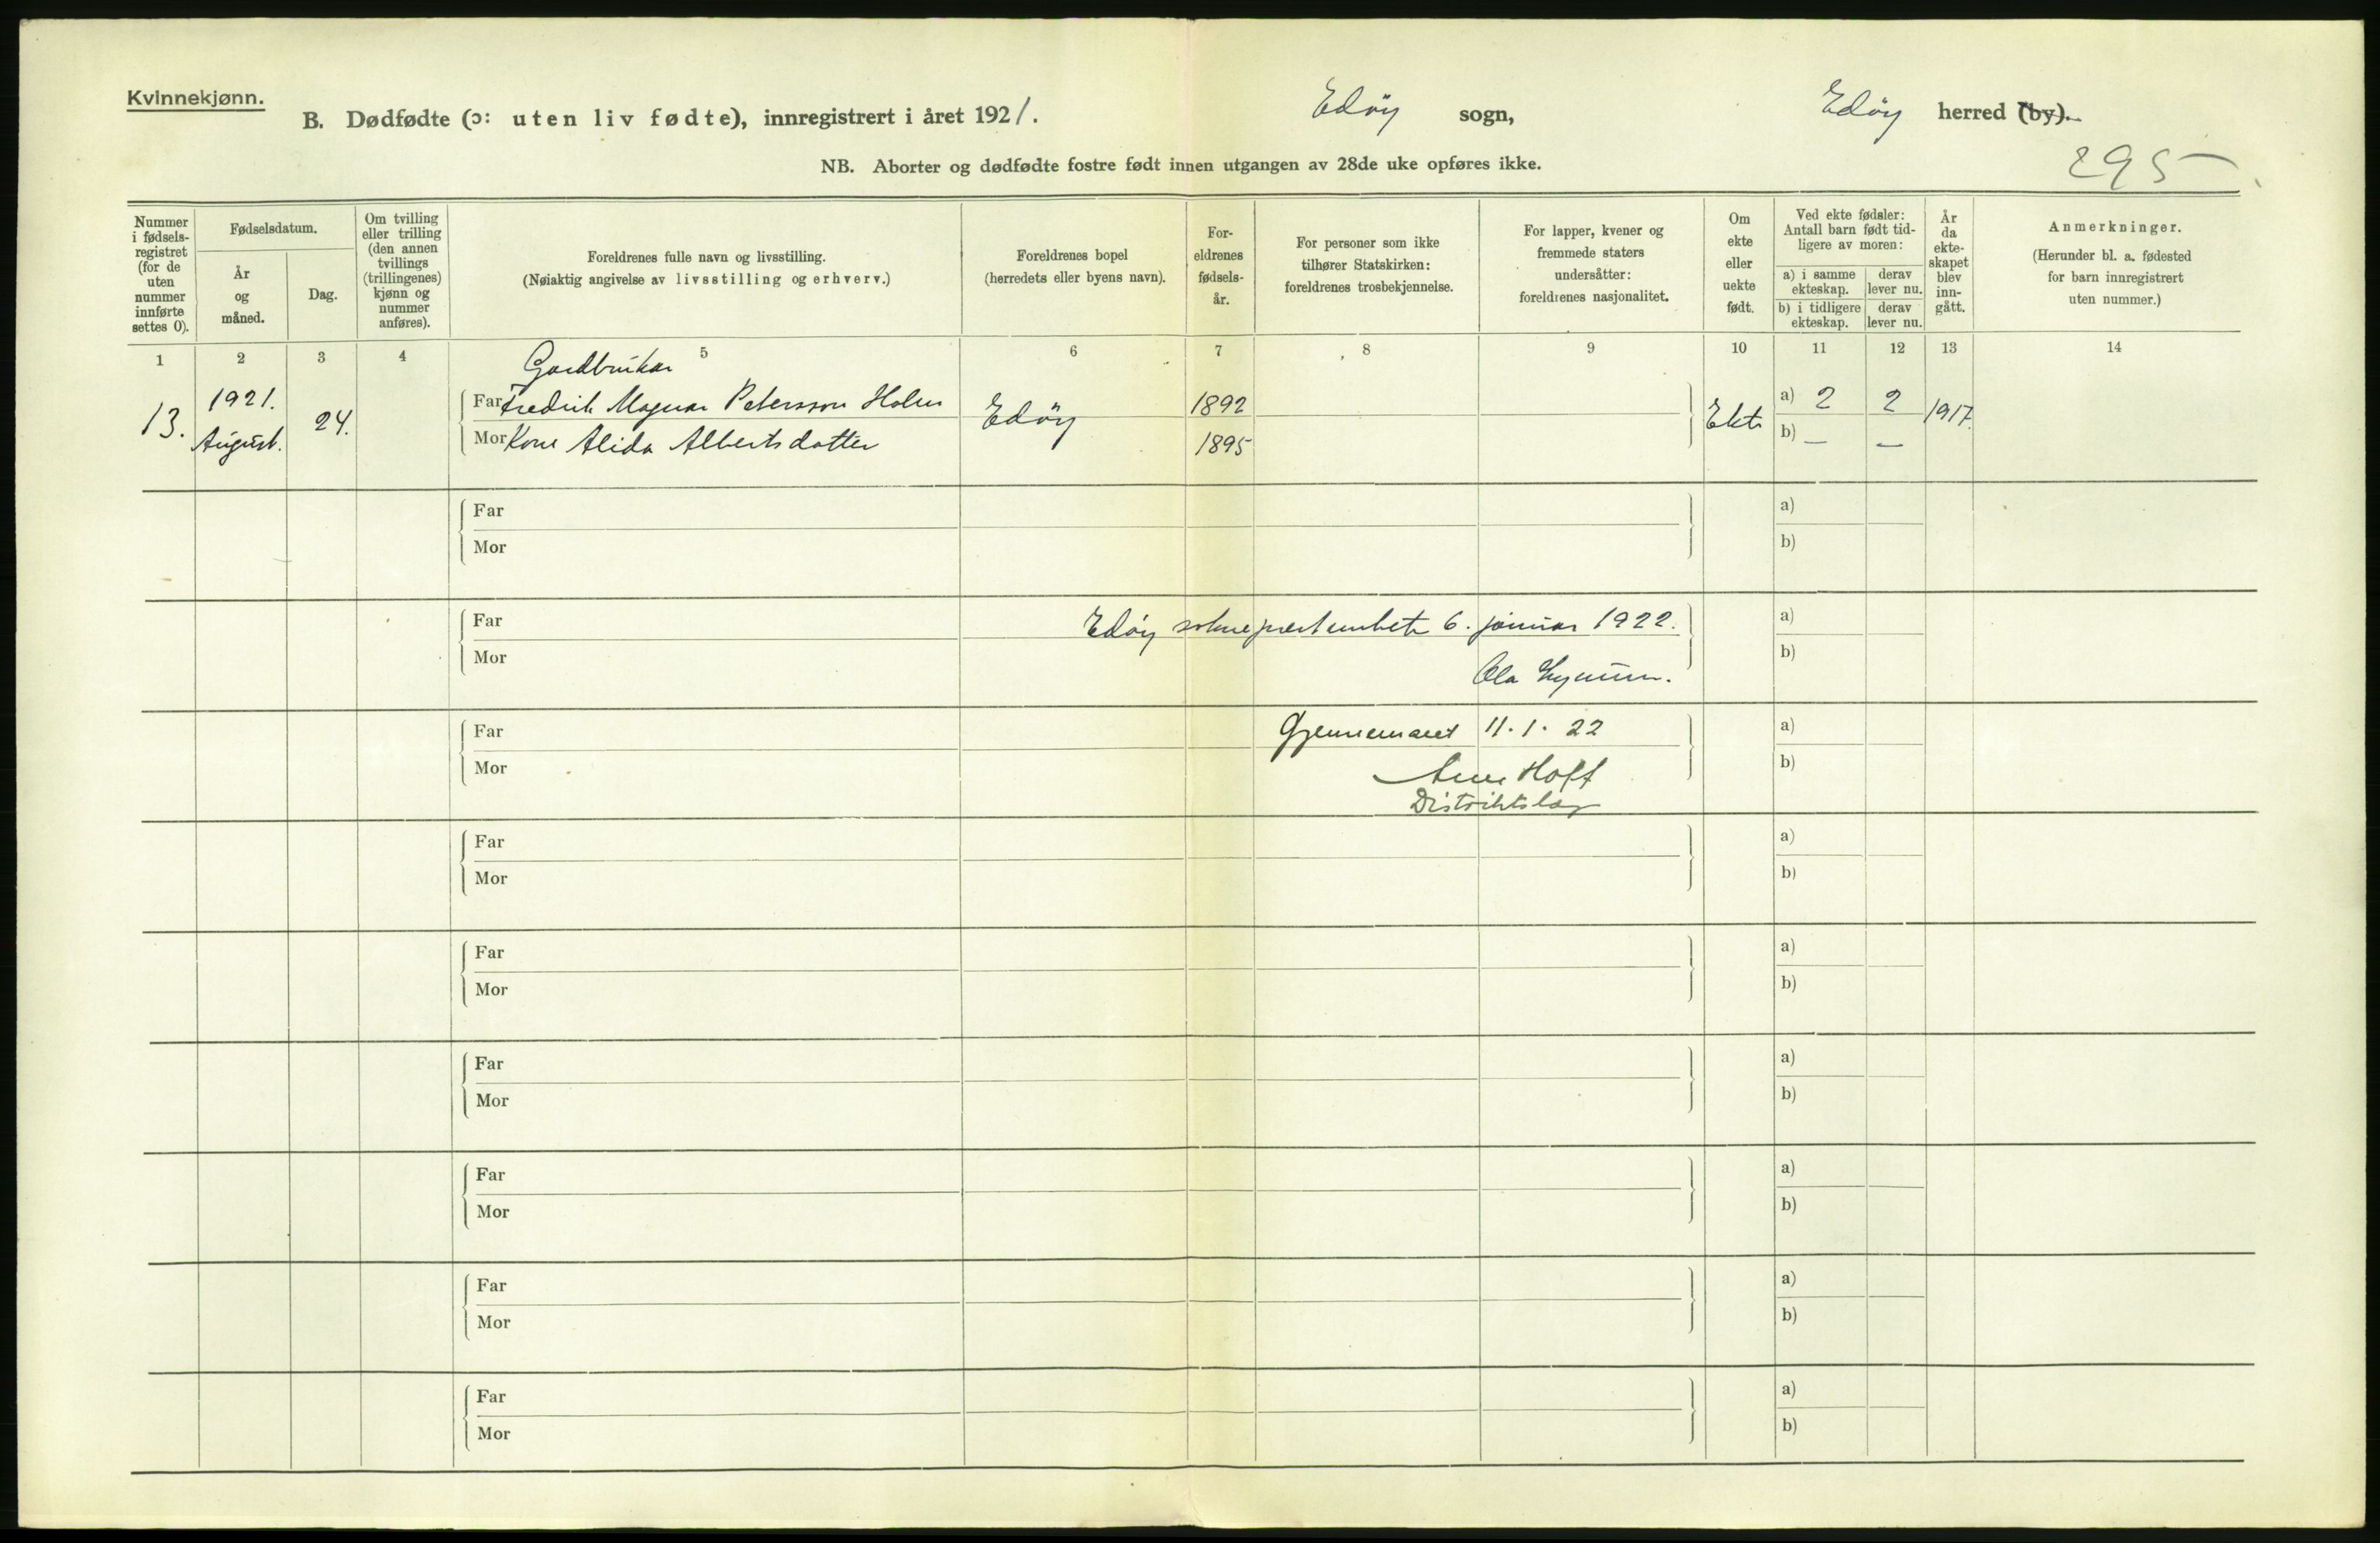 Kvinnekjønn.
B. Dødfødte (ɔ: uten liv fødte), innregistrert i året 1921. Edöy sogn, Edöy herred (by).
NB. Aborter og dødfødte fostre født innen utgangen av 28de uke opføres ikke.
295
Nummer i fødsels-registret (for de uten nummer innførte settes 0).
Fødselsdatum.
År og måned.
Dag.
Om tvilling eller trilling (den annen tvillings (trillingenes) kjønn og nummer anføres).
Foreldrenes fulle navn og livsstilling.
(Nøiaktig angivelse av livsstilling og erhverv.)
Foreldrenes bopel
(herredets eller byens navn).
For-eldrenes fødsels-år.
For personer som ikke tilhører Statskirken: foreldrenes trosbekjennelse.
For lapper, kvener og fremmede staters undersåtter: foreldrenes nasjonalitet.
Om ekte eller uekte født.
Ved ekte fødsler: Antall barn født tid-ligere av moren:
a) i samme ekteskap.
derav lever nu.
b) i tidligere ekteskap.
derav lever nu.
År da ekte-skapet blev inn-gått.
Anmerkninger.
(Herunder bl. a. fødested for barn innregistrert uten nummer.)
1 2 3 4 5 6 7 8 9 10 11 12 13 14
Gardbrukar
13. 1921. August. 24.
Far Fredrik Magnar Petersson Holm Edöy 1892 Ekte a) 2 2 1917.
Mor Kone Alida Albertsdotter 1895 b) — —
Far a)
Mor b)
Far Edöy sokneprestembete 6. januar 1922. a)
Mor Ola b)
Far 11.1.22 a)
Mor Hoff b)
Distriktslæge
Far a)
Mor b)
Far a)
Mor b)
Far a)
Mor b)
Far a)
Mor b)
Far a)
Mor b)
Far a)
Mor b)